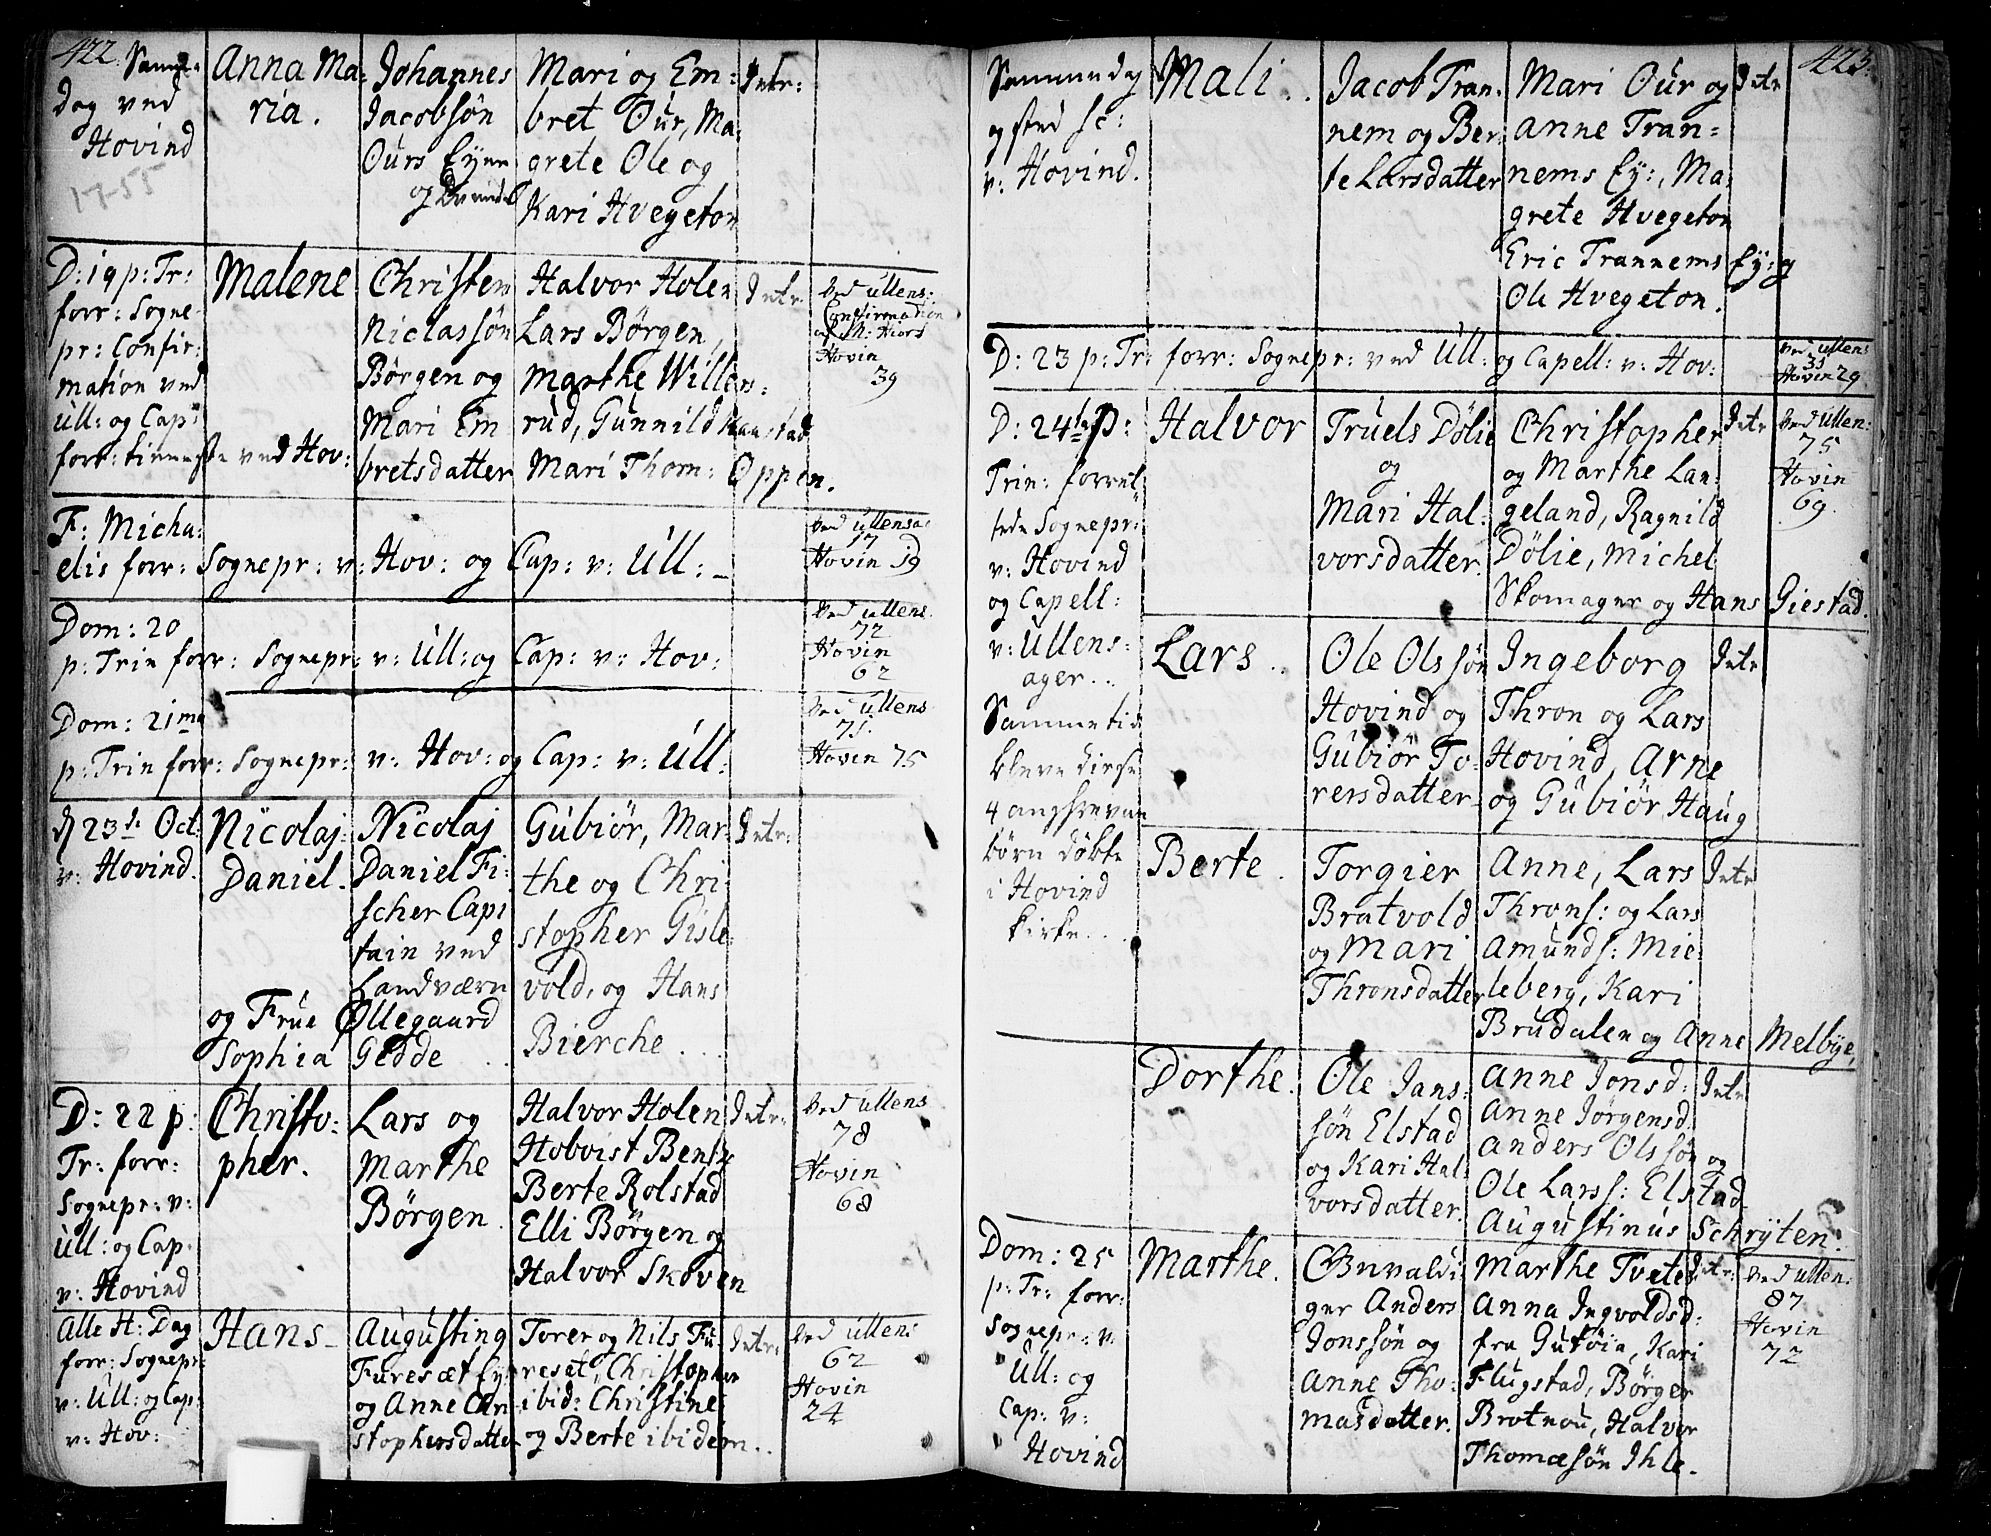 422.
Samme
Dag ved
Hovind
1755
Anna Ma:
ria.
Johannes
Jacobsön
Ours Eyer
og
Mari og Em:
bret Our, Ma:
grete Ole og
Kari Hvegeton
Intr:
D: 19 p: Tr:
forr: Sogne
pr: Confir:
mation ved
Ull: og Cap:
forr: tieneste ved Hov:
Malene
Christen
Niclassön
Börgen og
Mari Em
bretsdatter
Halvor Holen
Lars Börgen,
Marthe Willers:
rud, Gunnild Kaastad
Mari Thom: Oppen.
Intr
Ved Ullens:
Confirmation
Hovin
39
F: Micha:
elis forr: Sognepr: v: Hov: og Cap: v: Ull: –
Ved Ullensa:
17
Hovin 19
Dom: 20
p: Trin forr: Sognepr: v: Ull: og Cap: v: Hov:
Ved Ullens
72
Hovin
62
Dom: 21ma
p: Trin forr: Sognepr: v: Hov: og Cap: v: Ull:
Ved Ullens
71.
Hovin 75
d 23de Oct:
v: Hovind.
Nicolaj:
Daniel.
Nicolaj
Daniel Fi:
scher Capi
tain ved
Landværn
og Frue Ollegaard
Sophia Gedde
Gubiör, Mar:
the og Chri
stopher Gisle:
vold, og Hans
Bierche
Intr:
D: 22 p:
Tr: forr:
Sognepr: v:
Ull: og Cap.
v: Hovind
Christo:
pher.
Lars og
Marthe
Börgen
Halvor Holen
Hobvist Bente
Berte Rolstad
Elli Börgen og
Halvor Skoven
Intr:
Ved Ullens
78
Hovin
68
Alle H: Dag
forr: Sognepr:
v: Ull: og Cap:
v: Hov:
Hans –
Augusting
Furesæt Ey:
og Anne Chri
stophersdatter
Torer og Nils Fu:
reset, Christopher
ibid: Christine
og Berte ibidem..
Intr:
Ved Ullens
62
Hovin
24
423.
Samme dag
og sted sc:
v: Hovind.
Mali..
Jacob Tran:
nem og Ber:
te Larsdatter
Mari Our og
Anne Tran=
nems Ey:, Ma:
grete Hvegeton
Eric Trannems Ey: og
Ole Hvegeton.
Intr
D: 23 p: Tr: forr: Sognepr: ved Ull: og Capell: v: Hov:
Ved Ullens
33
Hovin 29.
D: 24te p:
Trin: forret
tede Sognepr:
v: Hovind
og Capell:
v: Ullens:
ager..
Samme tid
bleve disse
4 angifevne
börn döbte
i Hovind
kirke...
Halvor
Truels Dölie
og
Mari Hal:
vorsdatter.
Christopher
og Marthe Lan:
geland, Ragnild
Dölie, Michel
Skomager og Hans Giestad.
Intr
Ved Ullen:
75
Hovin
69.
Lars..
Ole Olssön
Hovind og
Gubiör To:
rersdatter
Ingeborg
Thron og Lars
Hovind, Arne
og Gubiör Haug
Intr
Berte.
Torgier
Bratvold
og Mari
Thronsdatter
Anne, Lars
Throns: og Lars
Amunds: Mie:
leberg, Kari
Brudalen og Anne Melbye,
Intr
Dorthe.
Ole Jans:
sön Elstad
og Kari Hal:
vorsdatter.
Anne Jonsd:
Anne Jörgensd
Anders Olssön og
Ole Larss: Elstad
Augustinus Schryten.
Intr
Dom: 25
p: Tr: forr:
Sognepr: v:
Ull: og
Cap: v:
Hovind
Marthe.
Gevaldi
ger Anders
Jonssön og
Anne Tho:
masdatter.
Marthe Tveter
Anna Ingvoldsd:
fra Gutöia, Kari
Flugstad, Börger
Brotnou, Halvor
Thomæsön Ihle.
Intr:
Ved Ullen:
87
Hovin
72